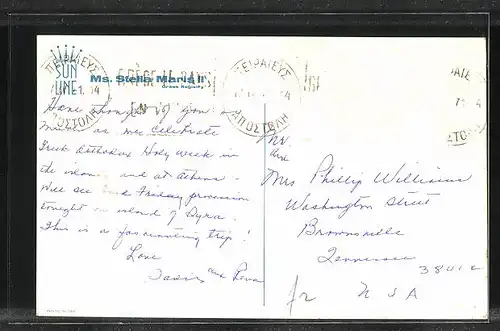 SUN
LINE
Ms. Stella Maris II
Greek Registry
ΠΕΙΡΑΙΕΥΣ
ΑΠΟΣΤΟΛΗ
ΠΕΙΡΑΙΕΥΣ
ΑΠΟΣΤΟΛΗ
Have thought of you so
much as we celebrate
Greek Orthodox Holy week in
the islands and at Athens.
Will see Good Friday procession
tonight on island of Hydra.
This is a fascinating trip!
Love
and Reva
Mr.
and
Mrs Phillip Williams
Washington Street
Brownsville
Tennessee
38012
USA